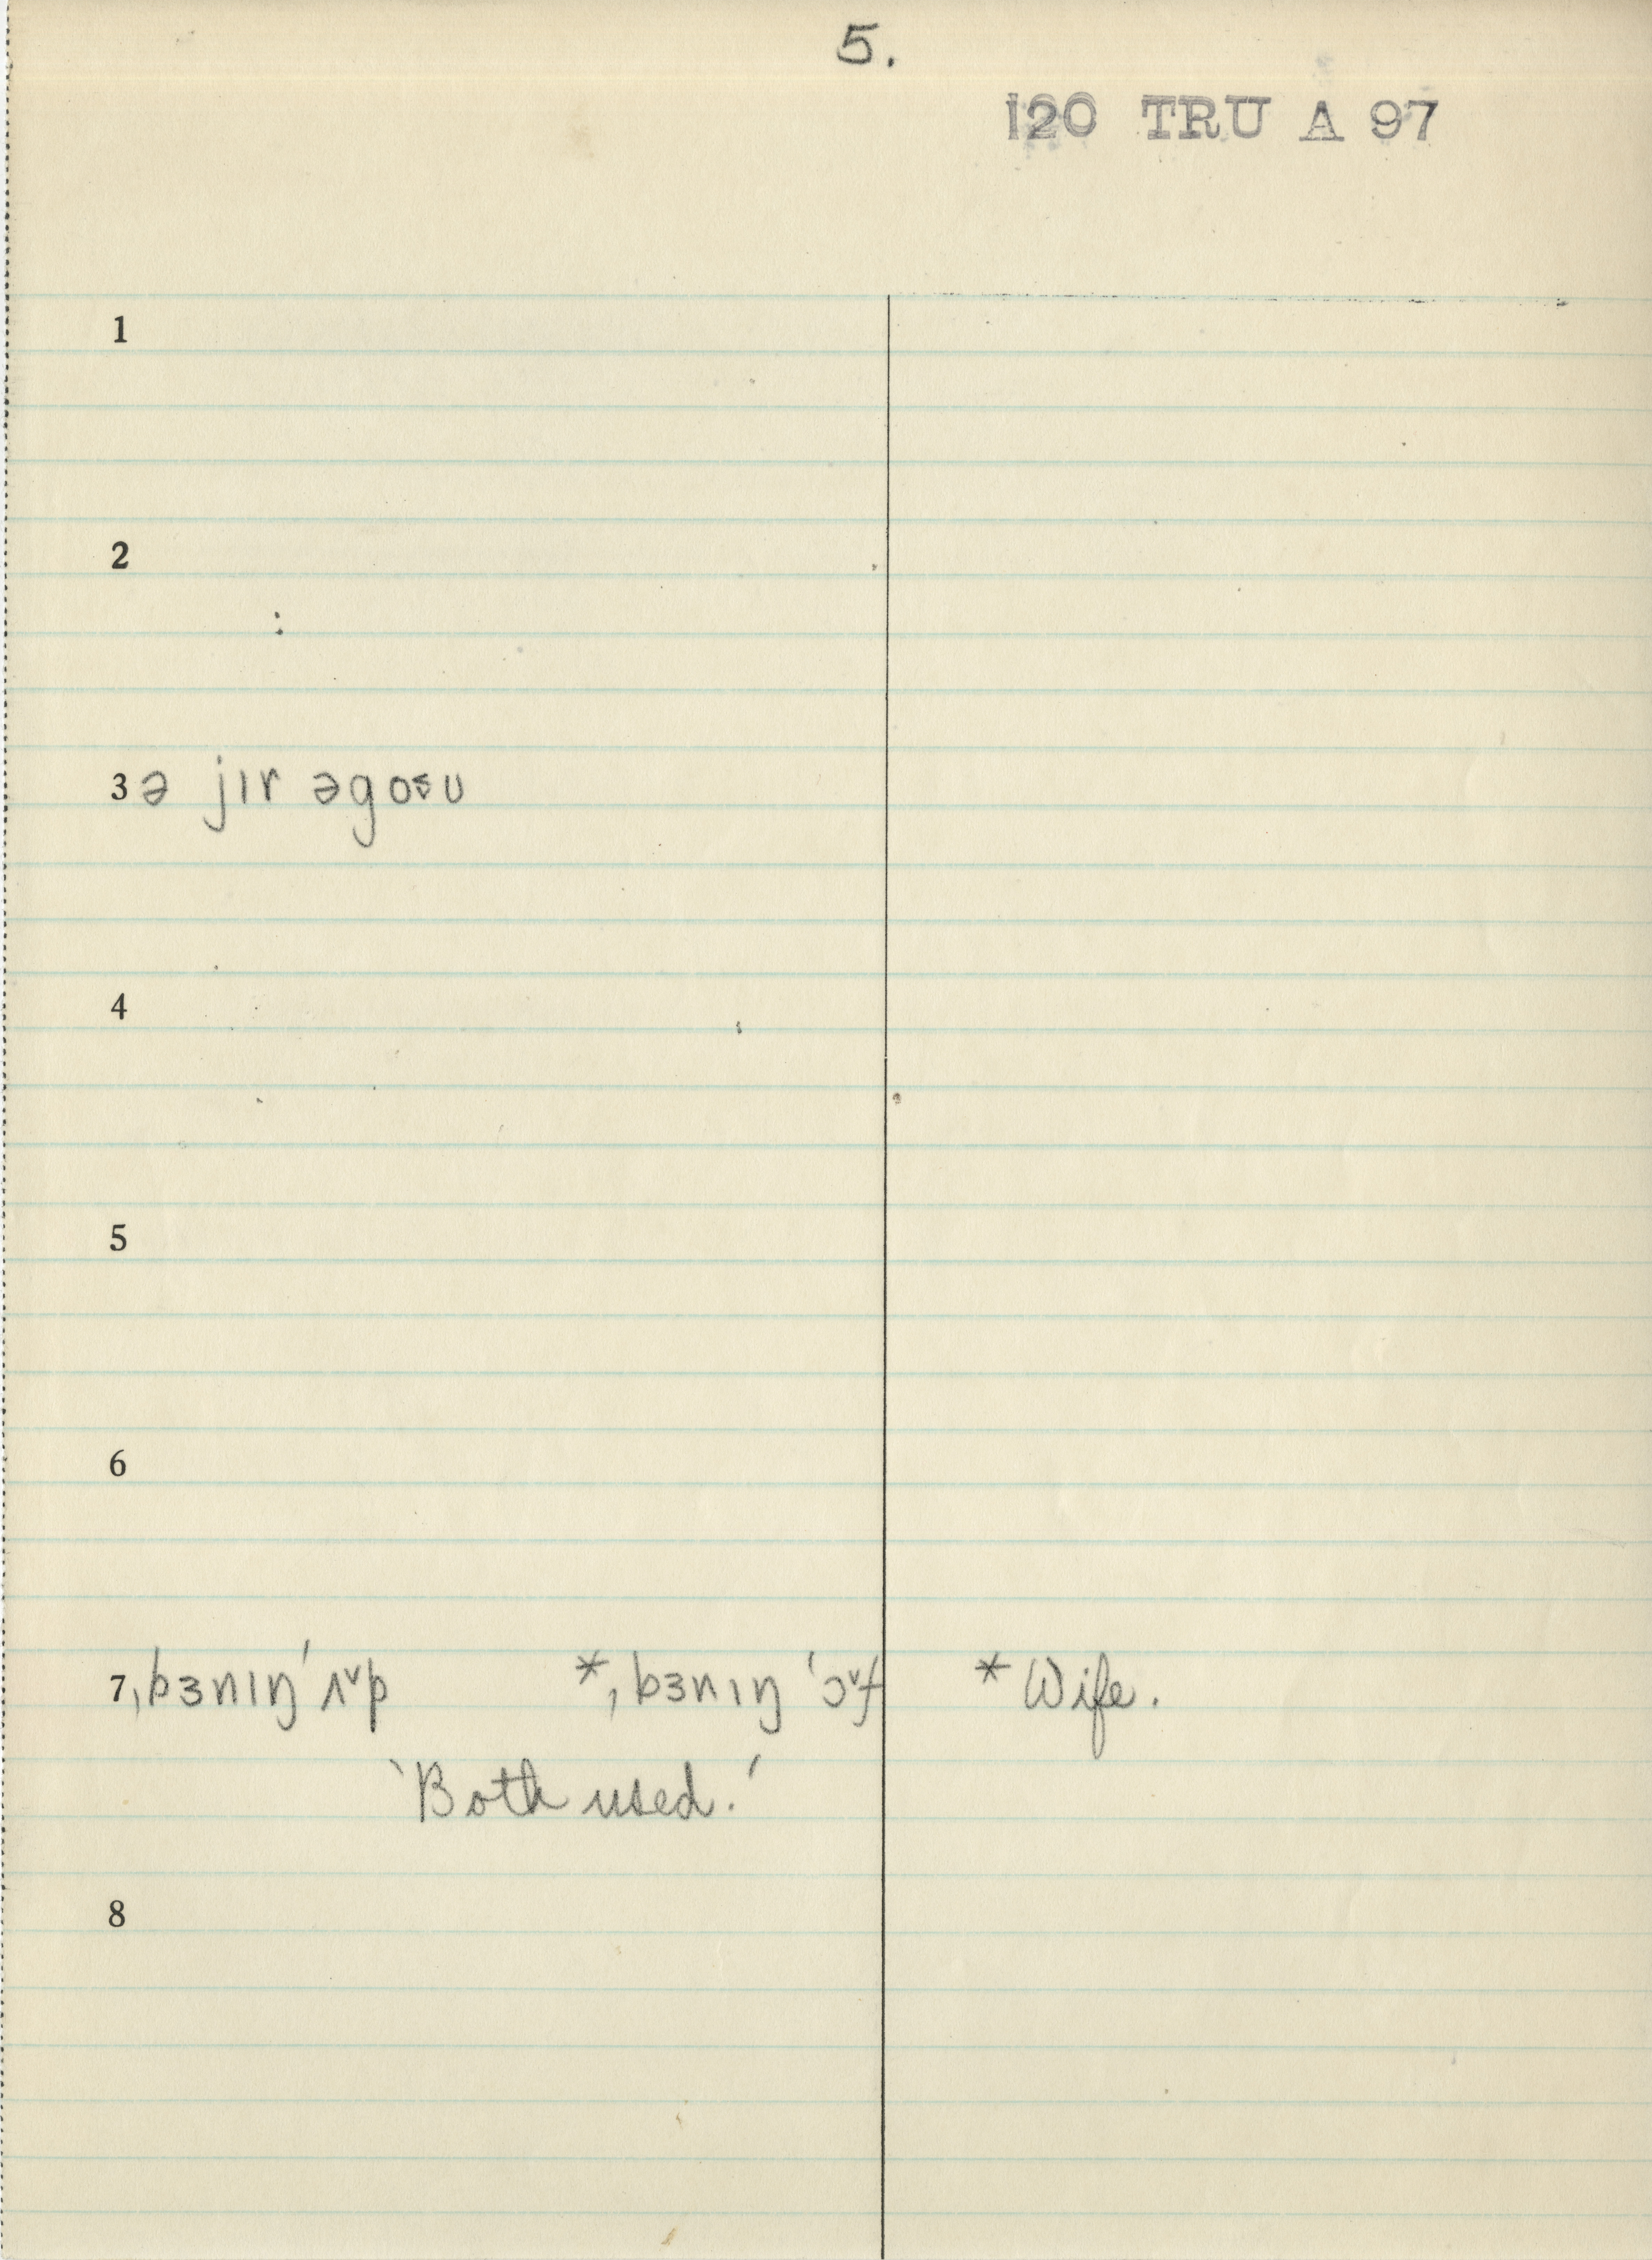 5.
120 TRU A 97
1
2
3 ə jɪr əgoᵋʊ
4
5
6
7 ˌbɜnɪŋˈʌ˅p *ˌbɜnɪŋˈɔ˅f * Wife.
‵Both used.′
8